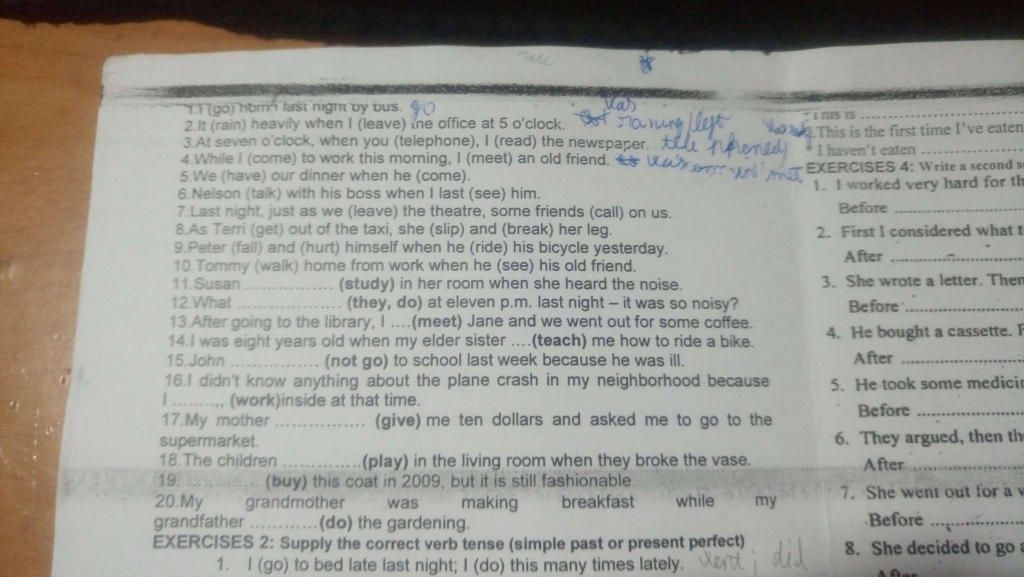 1.I (go) home last night by bus. go
2.It (rain) heavily when I (leave) the office at 5 o'clock. was raining / left
3.At seven o'clock, when you (telephone), I (read) the newspaper.
4.While I (come) to work this morning, I (meet) an old friend. was met
5.We (have) our dinner when he (come).
6.Nelson (talk) with his boss when I last (see) him.
7.Last night, just as we (leave) the theatre, some friends (call) on us.
8.As Terri (get) out of the taxi, she (slip) and (break) her leg.
9.Peter (fall) and (hurt) himself when he (ride) his bicycle yesterday.
10.Tommy (walk) home from work when he (see) his old friend.
11.Susan ................ (study) in her room when she heard the noise.
12.What ................... (they, do) at eleven p.m. last night – it was so noisy?
13.After going to the library, I ....(meet) Jane and we went out for some coffee.
14.I was eight years old when my elder sister ....(teach) me how to ride a bike.
15.John ................ (not go) to school last week because he was ill.
16.I didn't know anything about the plane crash in my neighborhood because
I ........,, (work)inside at that time.
17.My mother ................ (give) me ten dollars and asked me to go to the
supermarket.
18.The children ..............(play) in the living room when they broke the vase.
19. (buy) this coat in 2009, but it is still fashionable
20.My grandmother was making breakfast while my
grandfather ............(do) the gardening.
EXERCISES 2: Supply the correct verb tense (simple past or present perfect)
1. I (go) to bed late last night; I (do) this many times lately. went ; did
This is ..............................
This is the first time I've eaten
I haven't eaten ....................
EXERCISES 4: Write a second s
1. I worked very hard for th
Before ..........................
2. First I considered what t
After ..........................
3. She wrote a letter. Then
Before ..........................
4. He bought a cassette.
After ..........................
5. He took some medicin
Before ..........................
6. They argued, then th
After ..........................
7. She went out for a
Before ..........................
8. She decided to go a
After